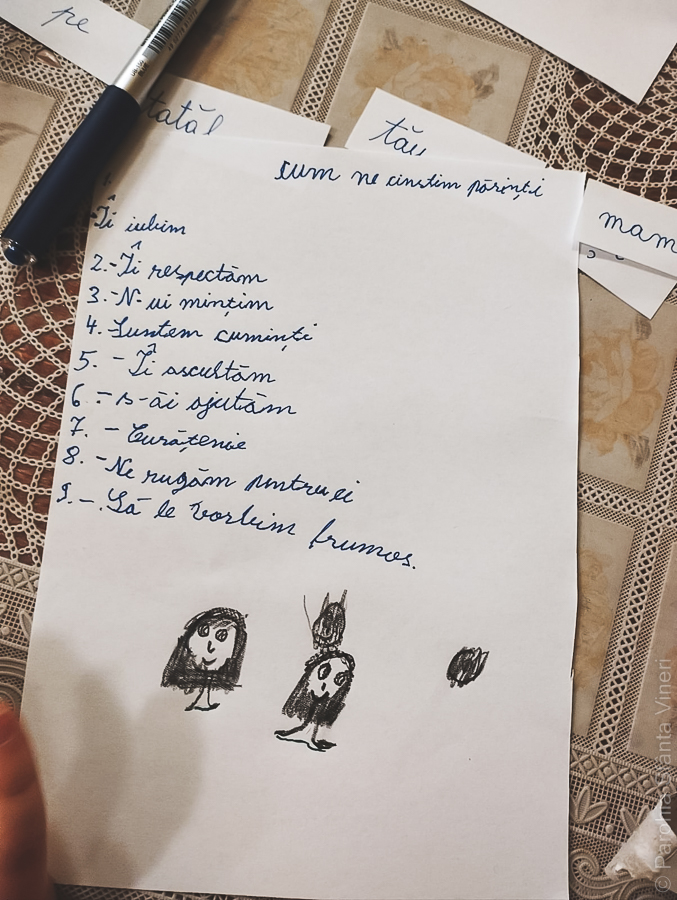 pe
tatăl
tău
mam
cum ne cinstim părinți
Îi iubim
2.-Îi respectăm
3.-N-ui mințim
4. Suntem cuminți
5. - Îi ascultăm
6.- s-ăi ajutăm
7. - Curățenie
8. -Ne rugăm pentru ei
9. -. Să le vorbim frumos.
© Parohia Sfanta Vineri